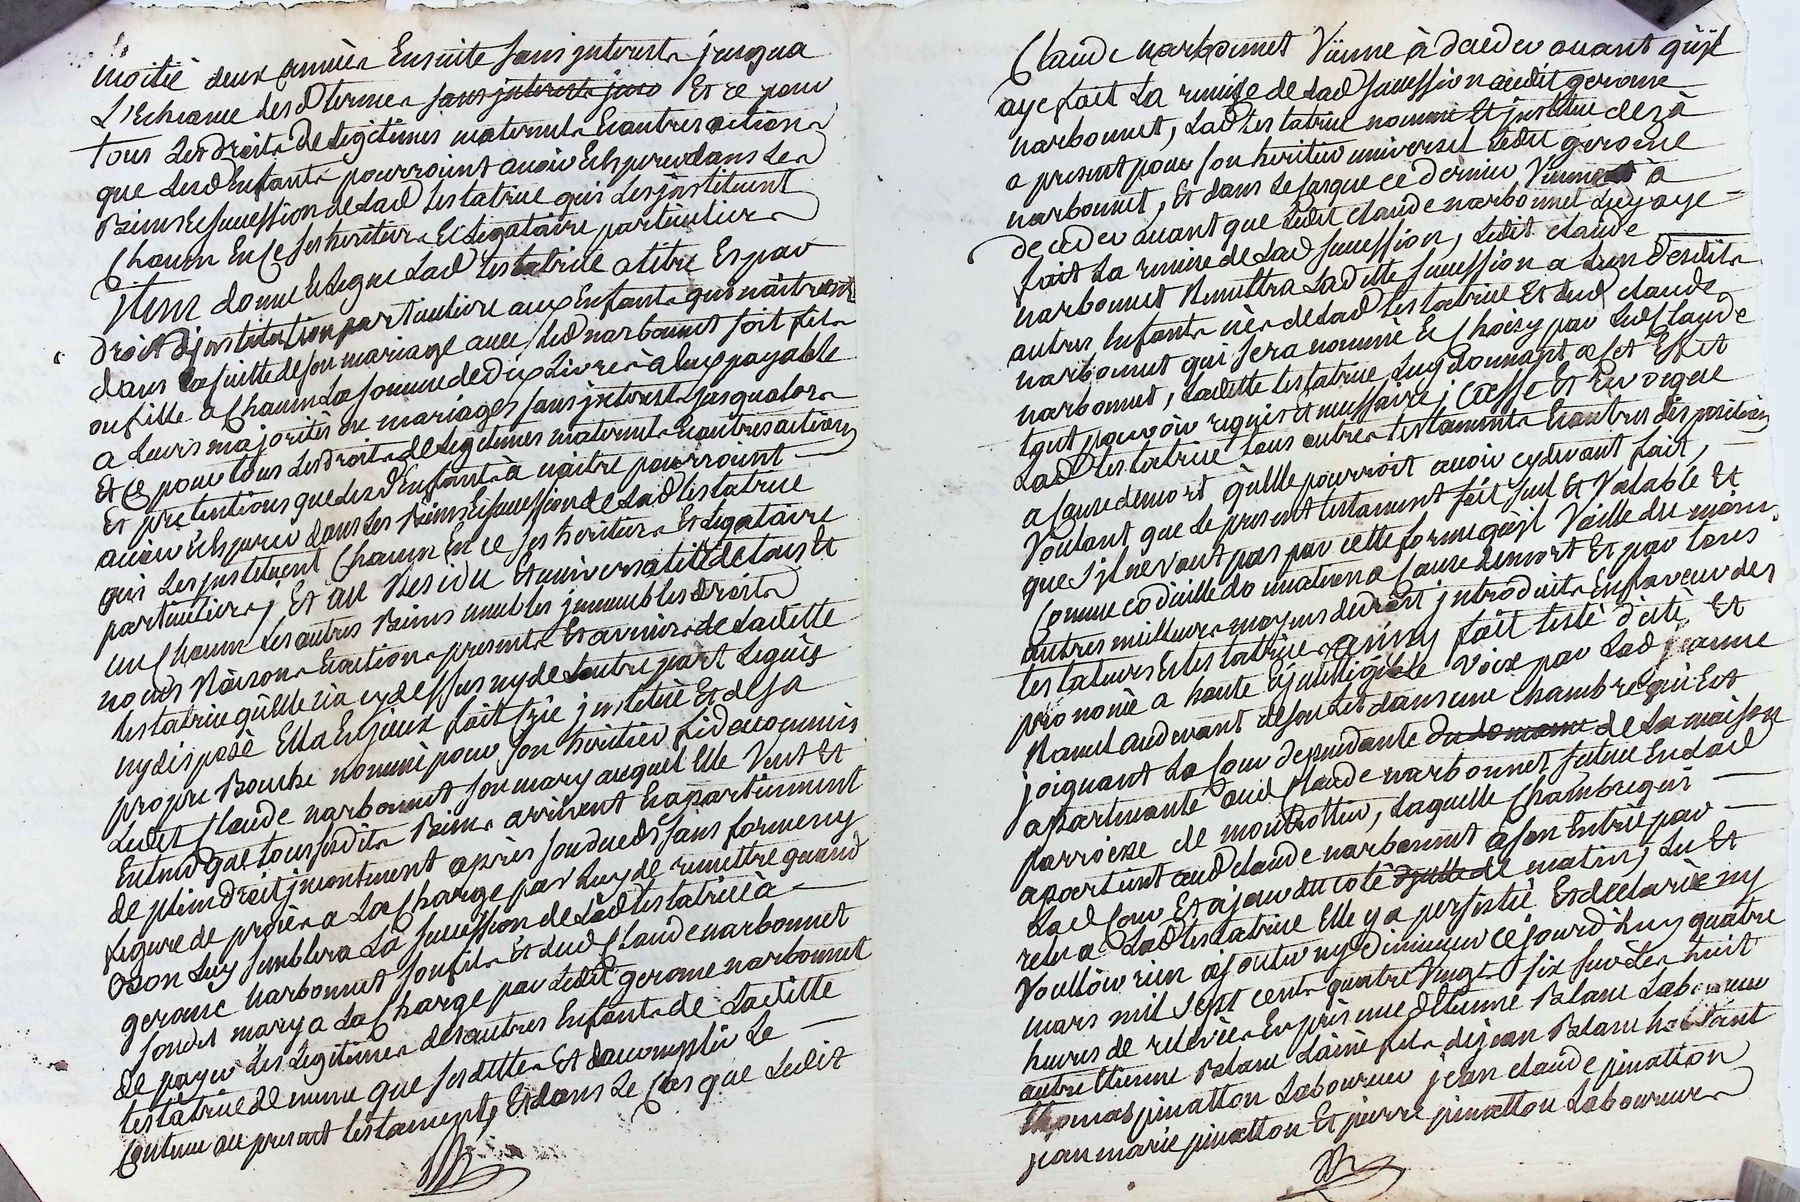 moitié deux année Ensuite sans jnterest jusqua
L'Echeance desd termes sans jnterest jus Et ce pour
tous Les droits De Legitimes maternels Et autres actions
que lesd Enfants pourroint avoir Et Esperer dans Les
Biens Et succession de Lad testatrice qui Les jnstituent
Chacun En ce ses heritiers Et Legataire particuliers
jtem donne Et Legue Lad testatrice a titre Et par
Droit d'jnstitution particuliere aux Enfants qui naitront
dans la suitte de son mariage avec led narbonnet soit fils
ou fille a Chacun La somme de Dix Livres a Eux payable
a Leurs majorités ou mariages sans jnterest jusqualors
Et ce pour tous Les droits de Legitimes maternels Et autres actions
Et pretentions que lesd Enfants à naitre pourroint
avoir Et Esperer dans Les Biens Et succession de Lad testatrice
qui Les jnstituent Chacun En ce ses heritiers Et Legataire
particuliers, Et au Residu Et universalité de tous Et
un Chacun Les autres Biens meubles jmmeubles droits
noms Raisons Et actions present Et avenirs de Laditte
testatrice qu'Elle n'a cy dessus ny de Lautre part Legués
ny disposé Elle En jceux fait Crée jnstitué Et de sa
propre Bouche nommé pour son heritier fideicommis
Ledit Claude narbonnet son mary auquel Elle Veut Et
Entend que tous sesdits Biens arrivent Et apartiennent
de plein droit jncontinent après son decds sans forme ny
figure de procès a La Charge par Luy de remettre quand
Bon Luy semblera La succession de Lad testatrice à
gerome narbonnet son fils Et dud Claude narbonnet
sondit mary a La Charge par Ledit gerome narbonnet
de payer Les Legitimes des autres Enfants de Laditte
testatrice de meme que ses dettes Et daccomplir Le
Contenu au present testament, Et dans Le Cas que Ledit
Claude narbonnet Vienne à deceder avant qu'jl
aye fait La remise de Lad succession audit gerome
narbonnet, Lad testatrice nomme Et jnstitue dez à
a present pour son heritier universel Ledit gerome
narbonnet, Et dans Le Cas que ce dernier Vienne à
deceder avant que Ledit Claude narbonnet Luy aye
fait La remise de Lad succession, Ledit Claude
narbonnet Remettra Laditte succession a Lun Desdits
autres Enfants nés de Lad testatrice Et dud Claude
narbonnet qui sera nommé Et Choisy par Led Claude
narbonnet, Laditte testatrice Luy donnant a cet Effet
tout pouvoir requis et nessaire; Casse Et Revoque
Lad testatrice tous autres testaments Et autres dispositions
a Cause de mort qu'Elle pourroit avoir cydevant fait,
Voulant que Le present testament soit seul Et Valable Et
que s'jl ne Vaut pas par cette forme qu'jl Vaille du moins
Comme codicille donnation a Cause de mort Et par tous
autres meilleurs moyens de droit jntroduits En faveur des
testateurs Et testatrices ainsy fait testé dicté Et
prononcé a haute Et jntelligible Voix par Lad jeanne
Ramel au devant de son Lit dans une Chambre qui Est
joignant La Cour dependante du domaine de La maison
apartenante aud Claude narbonnet situee En Lad
parroisse de montrottier, Laquelle Chambre qui
apartient aud Claude narbonnet a son Entrée par
Lad Cour Et a jour du coté de matin, Lu Et
relu a Lad testatrice Elle y a persisté Et declarée ny
Vouloir rien ajouter ny Diminuer ce jourd'huy quatre
mars mil sept cents quatre Vingt six sur Les huit
heures de relevée En presence d'Etienne Blanc Laboureur
autre Etienne Blanc Lainé fils de jean Blanc habitant
thomas pinatton Laboureur jean claude pinatton
jean marie pinatton Et pierre pinatton Laboureurs